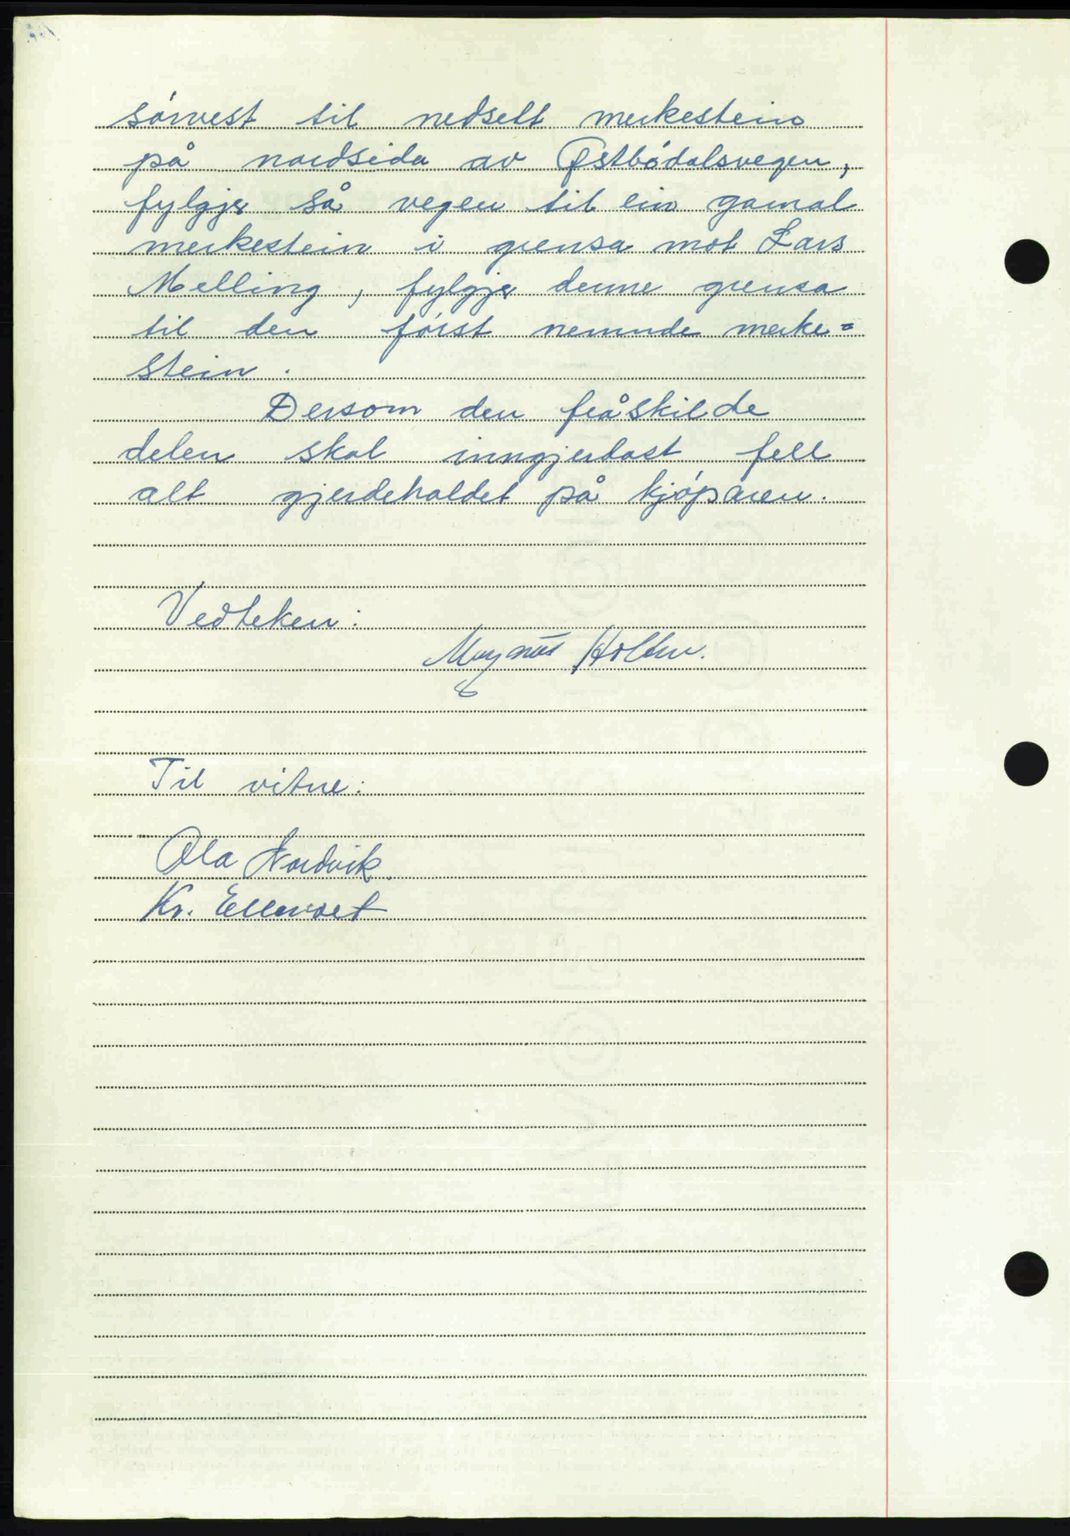 sørvest til nedsett merkestein
på nordsida av Østbødalsvegen,
fylgjer så vegen til ein gamal
merkestein i grensa mot Lars
Melling, fylgjer denne grensa
til den først nemnde merke=
stein.
Dersom den fråskilde
delen skal inngjerdast fell
alt gjerdehaldet på kjøparen.
Vedteken:
Magnus Holten.
Til vitne:
Ola Nordvik.
Kr.